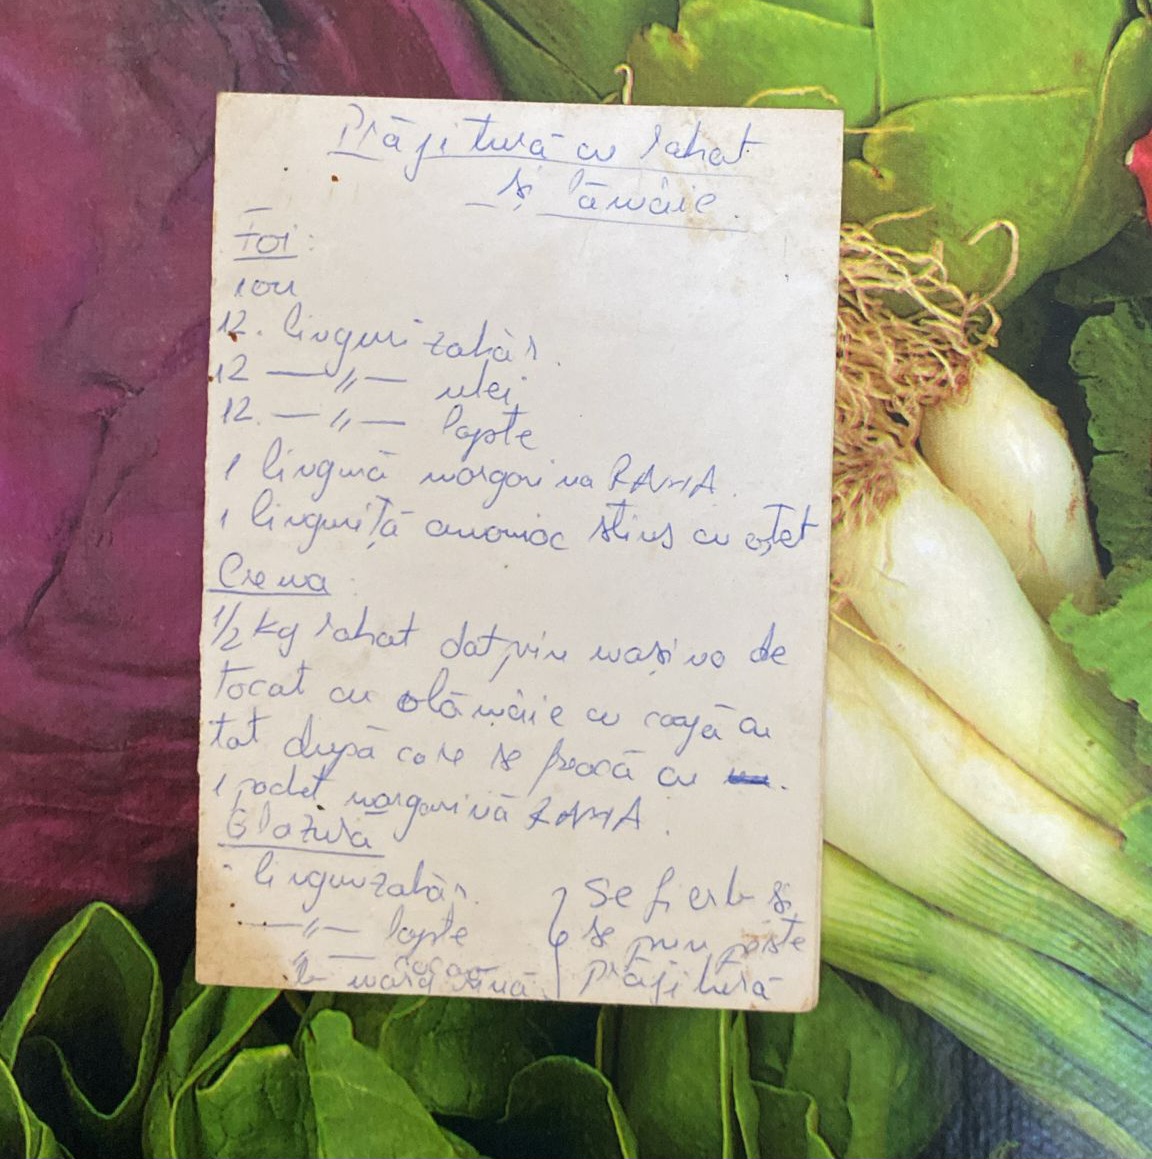 Prăjitură cu rahat
și lămâie.
Foi:
1 ou
12. linguri zahăr.
12 —〃— ulei
12. —〃— lapte
1 lingură margarina RAMA.
1 linguriță amoniac stins cu oțet
Crema
1/2 kg rahat dat prin mașina de
tocat cu o lămâie cu coajă cu
tot după care se freacă cu
1 pachet margarină RAMA.
Glazura
linguri zahăr.
—〃— lapte
—〃— cacao
margarină
Se fierb și
se pun peste
prăjitură